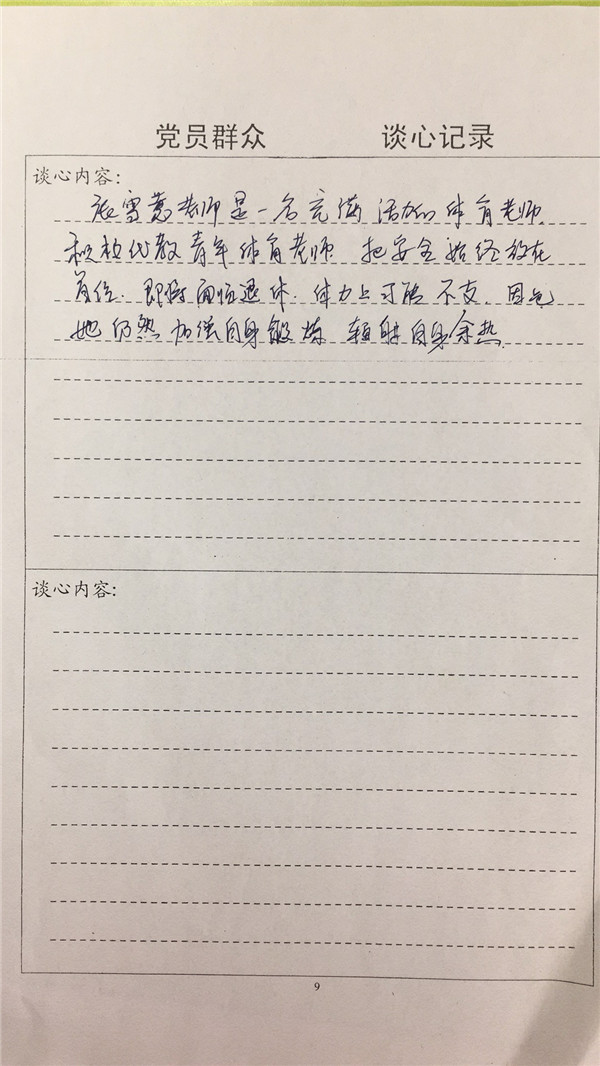 党员群众 谈心记录
谈心内容：
张雪慧老师是一名充满活力的体育老师，
积极代教青年体育老师，把安全始终放在
首位．即将面临退休．体力上可能不支，因此
她仍然加强自身锻炼，辐射自身余热．
谈心内容:
9